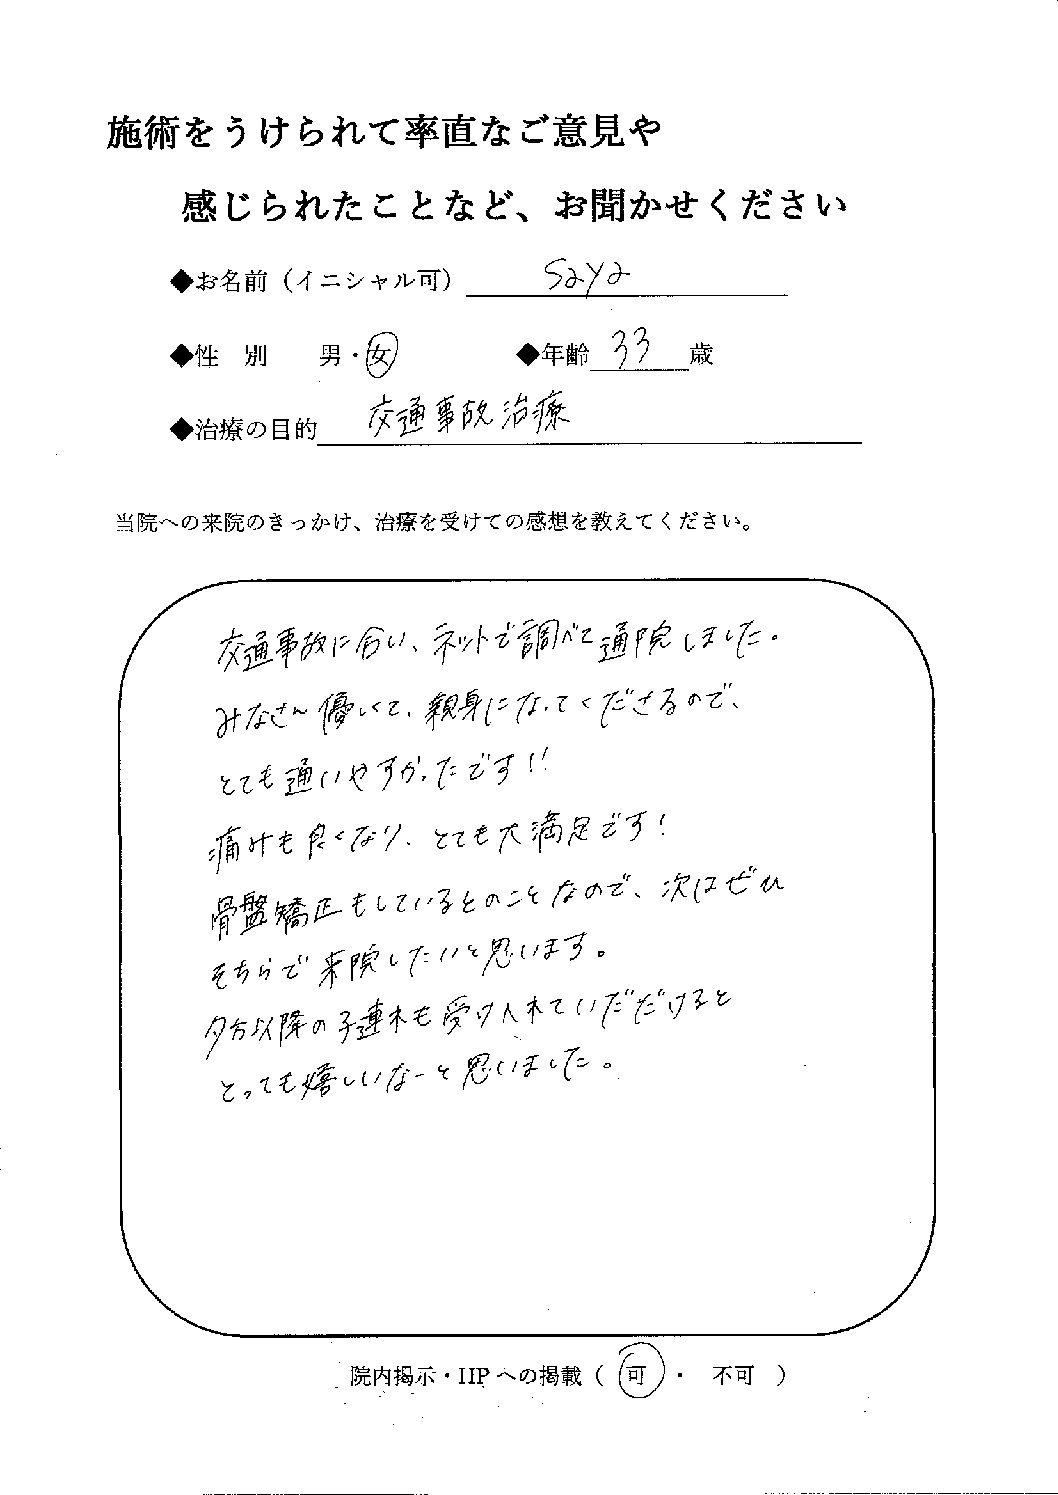 施術をうけられて率直なご意見や
感じられたことなど、お聞かせください
◆お名前（イニシャル可） saya
◆性　別　　男・女　　◆年齢 33 歳
◆治療の目的 交通事故治療
当院への来院のきっかけ、治療を受けての感想を教えてください。
交通事故に合い、ネットで調べて通院しました。
みなさん優しくて、親身になってくださるので、
とても通いやすかったです!!
痛みも良くなり、とても大満足です!
骨盤矯正もしているとのことなので、次はぜひ
そちらで来院したいと思います。
夕方以降の子連れも受け入れていただけると
とっても嬉しいなーと思いました。
院内掲示・HPへの掲載（ 可 ・ 不可 ）